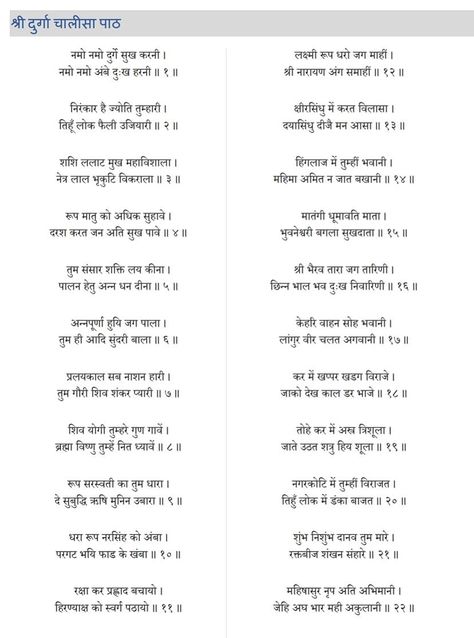 श्री दुर्गा चालीसा पाठ
नमो नमो दुर्गे सुख करनी ।
नमो नमो अंबे दुःख हरनी ॥ १ ॥
निरंकार है ज्योति तुम्हारी ।
तिहूँ लोक फैली उजियारी ॥ २ ॥
शशि ललाट मुख महाविशाला ।
नेत्र लाल भृकुटि विकराला ॥ ३ ॥
रूप मातु को अधिक सुहावे ।
दरश करत जन अति सुख पावे ॥ ४ ॥
तुम संसार शक्ति लय कीना ।
पालन हेतु अन्न धन दीना ॥ ५ ॥
अन्नपूर्णा हुयि जग पाला ।
तुम ही आदि सुंदरी बाला ॥ ६ ॥
प्रलयकाल सब नाशन हारी ।
तुम गौरी शिव शंकर प्यारी ॥ ७ ॥
शिव योगी तुम्हरे गुण गावें ।
ब्रह्मा विष्णु तुम्हें नित ध्यावें ॥ ८ ॥
रूप सरस्वती का तुम धारा ।
दे सुबुद्धि ऋषि मुनिन उबारा ॥ ९ ॥
धरा रूप नरसिंह को अंबा ।
परगट भयि फाड के खंबा ॥ १० ॥
रक्षा कर प्रह्लाद बचायो ।
हिरण्याक्ष को स्वर्ग पठायो ॥ ११ ॥
लक्ष्मी रूप धरो जग माहीं ।
श्री नारायण अंग समाहीं ॥ १२ ॥
क्षीरसिंधु में करत विलासा ।
दयासिंधु दीजै मन आसा ॥ १३ ॥
हिंगलाज में तुम्हीं भवानी ।
महिमा अमित न जात बखानी ॥ १४ ॥
मातंगी धूमावति माता ।
भुवनेश्वरी बगला सुखदाता ॥ १५ ॥
श्री भैरव तारा जग तारिणी ।
छिन्न भाल भव दुःख निवारिणी ॥ १६ ॥
केहरि वाहन सोह भवानी ।
लांगुर वीर चलत अगवानी ॥ १७ ॥
कर में खप्पर खडग विराजे ।
जाको देख काल डर भाजे ॥ १८ ॥
तोहे कर में अस्त्र त्रिशूला ।
जाते उठत शत्रु हिय शूला ॥ १९ ॥
नगरकोटि में तुम्हीं विराजत ।
तिहुँ लोक में डंका बाजत ॥ २० ॥
शुंभ निशुंभ दानव तुम मारे ।
रक्तबीज शंखन संहारे ॥ २१ ॥
महिषासुर नृप अति अभिमानी ।
जेहि अघ भार मही अकुलानी ॥ २२ ॥